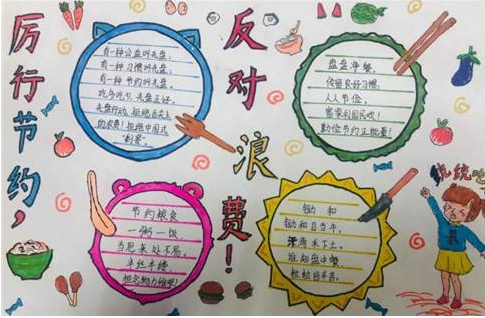 厉行节约，
反对浪费！
有一种公益叫光盘，
有一种习惯叫光盘，
有一种节约叫光盘，
光盘正好。
光盘行动，拒绝舌尖上
的浪费！拒绝中国式
“剩宴”。
盘盘净餐，
传留良好习惯；
人人节俭，
富家利国民欢！
勤俭节约正能量！
节约粮食
一粥一饭
当思来处不易，
半丝半缕，
恒念物力维艰！
锄和
锄和日当午，
滴禾下土。
谁知盘中餐
粒粒皆辛苦。
统统吃